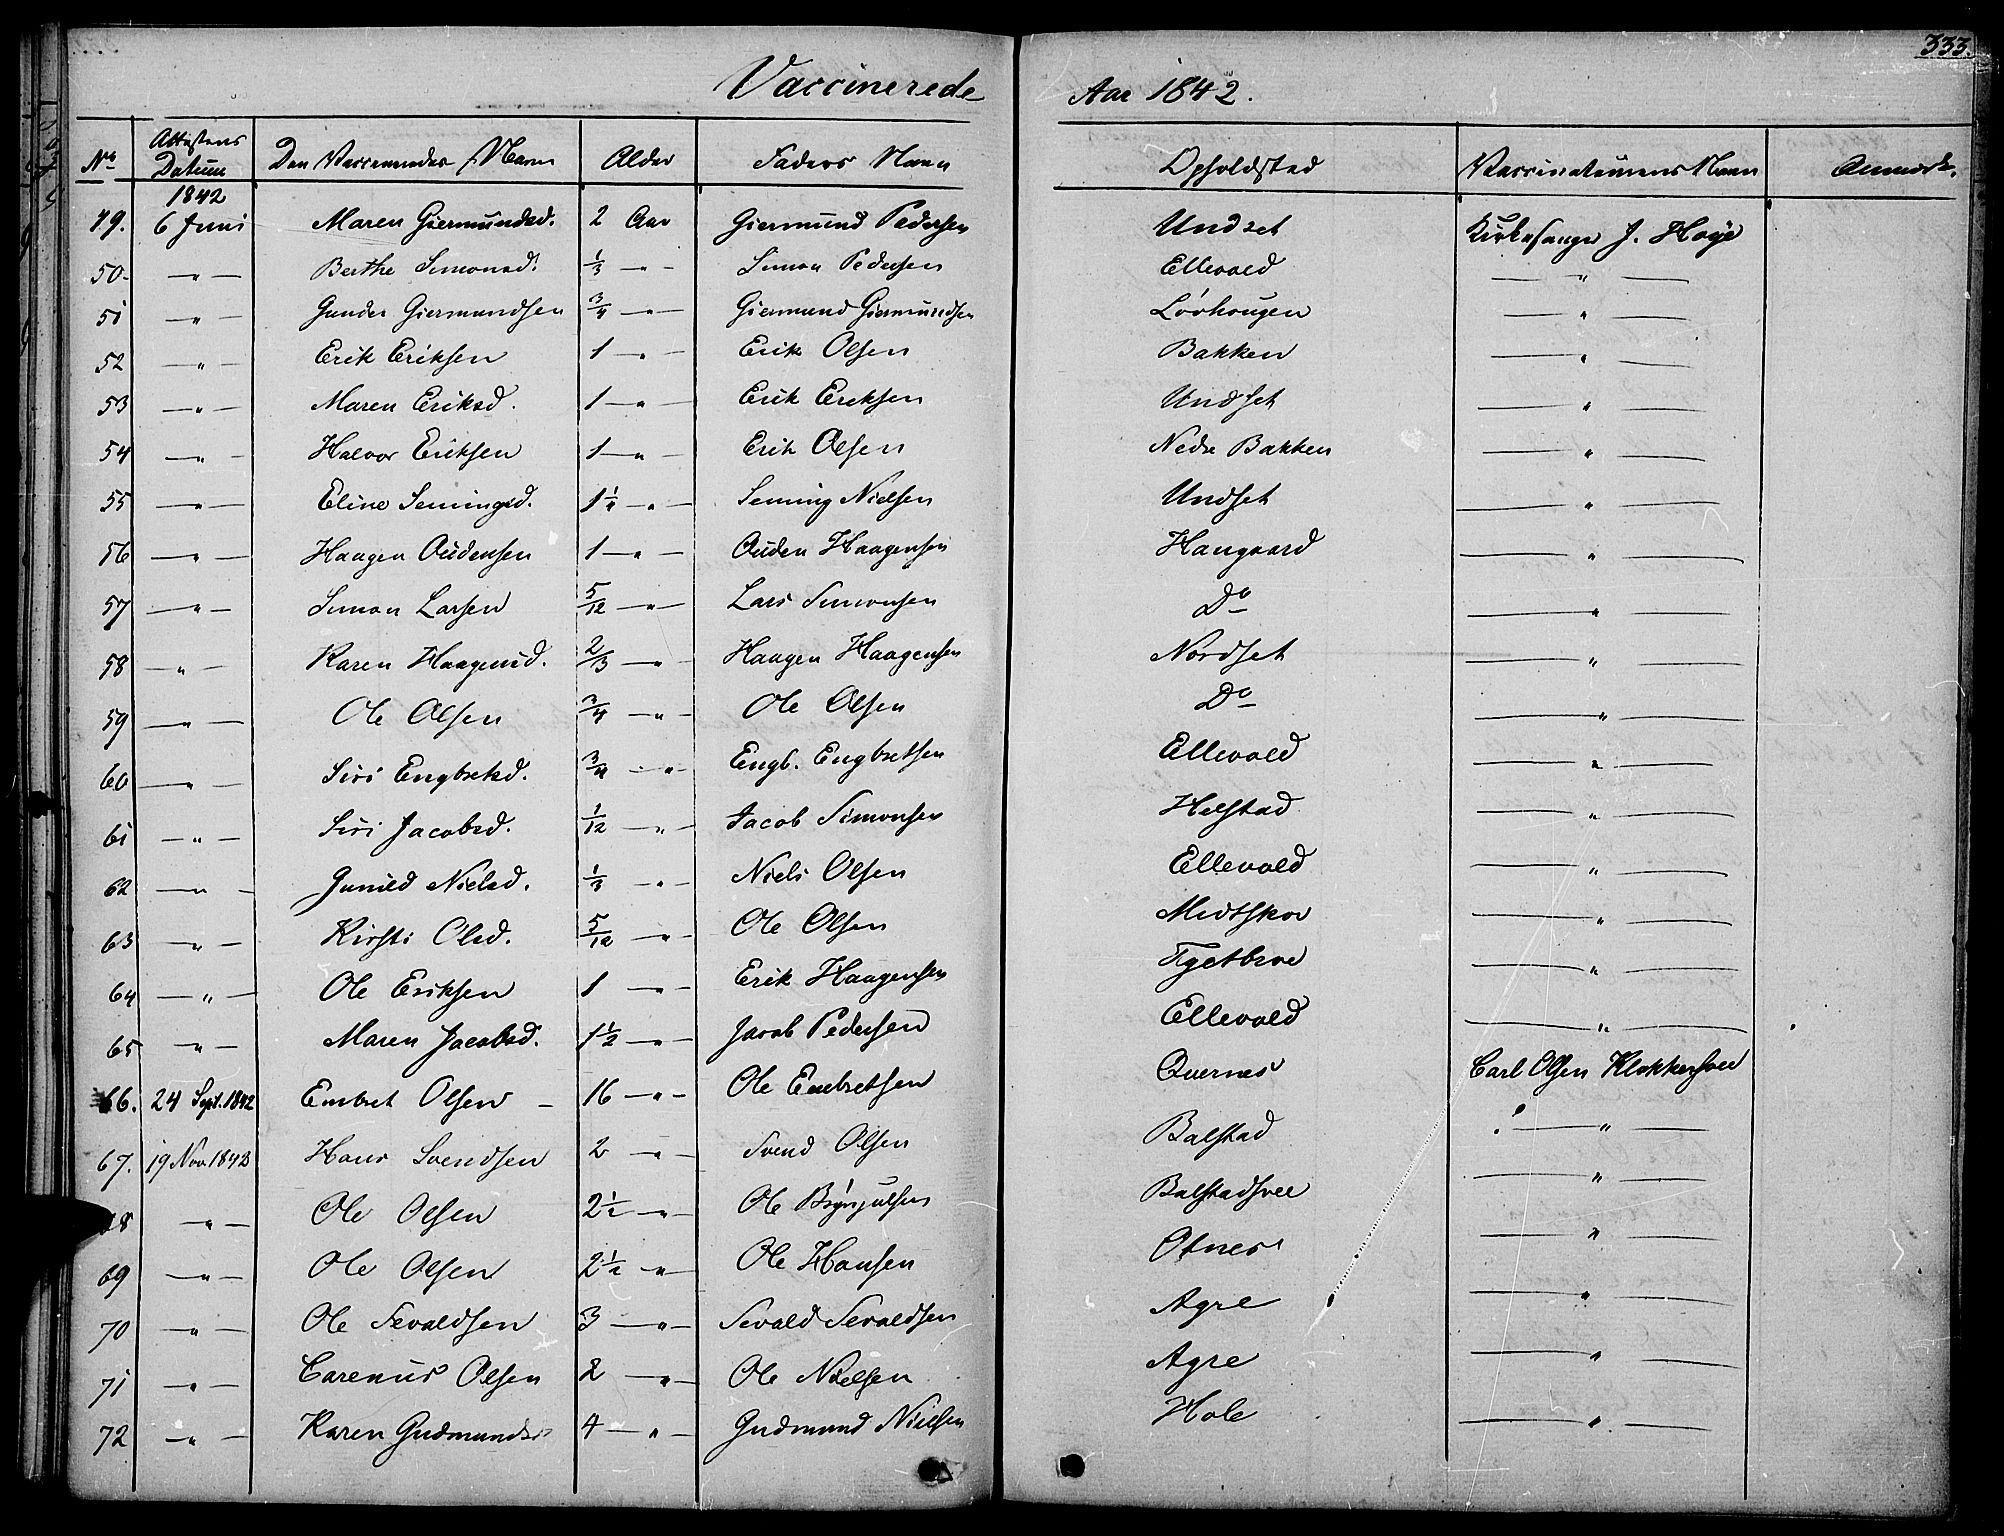 333.
Vaccinerede Aar 1842.
No Attestens Datum Den Vaccineredes Navn Alder Faders Navn Opholdsted Vaccinateurens Navn Anmærk.
1842
49. 6 Juni Maren Giermundsd. 2 Aar Giermund Pedersen Undset Kirkesanger J. Høye
50. — " — Berthe Simonsd. 1/3 — " — Simon Pedersen Ellevold — " —
51 — " — Gunder Giermundsen 3/4 — " — Giermund Giermundsen Løvhougen — " —
52 — " — Erik Eriksen 1 — " — Erik Olsen Bakken — " —
53 — " — Maren Eriksd. 1 — " — Erik Ereksen Undset — " —
54 — " — Halvor Eriksen 1 — " — Erik Olsen Nedre Bakken — " —
55 — " — Eline Semingsd. 1 1/4 — " — Semming Nielsen Undset — " —
56 — " — Haagen Oudensen 1 — " — Ouden Haagensen Haugaard — " —
57 — " — Simon Larsen 5/12 — " — Lars Simonsen Do — " —
58 — " — Karen Haagensd. 2/3 — " — Haagen Haagensen Nordset — " —
59 — " — Ole Olsen 3/4 — " — Ole Olsen Do — " —
60 — " — Siri Engbretsd. 3/4 — " — Engb. Engbretsen Ellevold — " —
61 — " — Siri Jacobsd. 1/12 — " — Jacob Simonsen Helstad — " —
62 — " — Gunild Nielsd. 1/3 — " — Niels Olsen Ellevold — " —
63 — " — Kirsti Olsd. 5/12 — " — Ole Olsen Midtskov — " —
64 — " — Ole Eriksen 1 — " — Erik Haagensen — " —
65 — " — Maren Jacobsd. 1 1/2 — " — Jacob Pedersen Ellevold — " —
66. 24 Sept. 1842 Embret Olsen – 16 — " — Ole Embretsen Qvernes Carl Olsen Klokkersvee
67. 19 Nov 1842 Hans Svendsen 2 — " — Svend Olsen Balstad — " —
68 — " — Ole Olsen 2 1/2 — " — Ole Brynjulsen Balstadsvee — " —
69 — " — Ole Olsen 2 1/2 — " — Ole Hansen Otnes — " —
70 — " — Ole Sevaldsen 3 — " — Sevald Sevaldsen Agre — " —
71 — " — Carenus Olsen 2 — " — Ole Nielsen Agre — " —
72 — " — Karen Gudmundsd 4 — " — Gudmund Nielsen Hole — " —